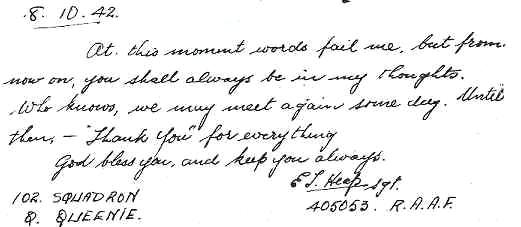 8. 10. 42.
At. this moment words fail me, but from
now on, you shall always be in my thoughts.
Who knows, we may meet again some day. Until
then, - "Thank You" for everything
God bless you, and keep you always.
E J. Heap Sgt.
102. SQUADRON
405053. R.A.A.F.
Q. QUEENIE.